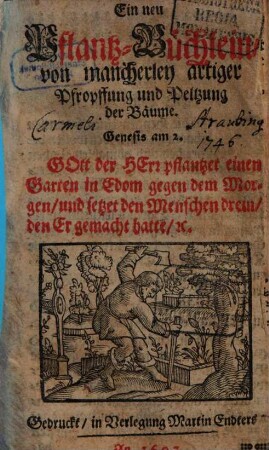 Ein neu
Pflantz-Büchlein/
von mancherley artiger
Pfropffung und Peltzung
der Bäume.
Carmeli Straubing
1746
Genesis am 2.
GOtt der HErr pflantzet einen
Garten in Edom gegen dem Mor-
gen/und setzet den Menschen drein/
den Er gemacht hatte/ꝛc.
Gedruckt/ in Verlegung Martin Endters